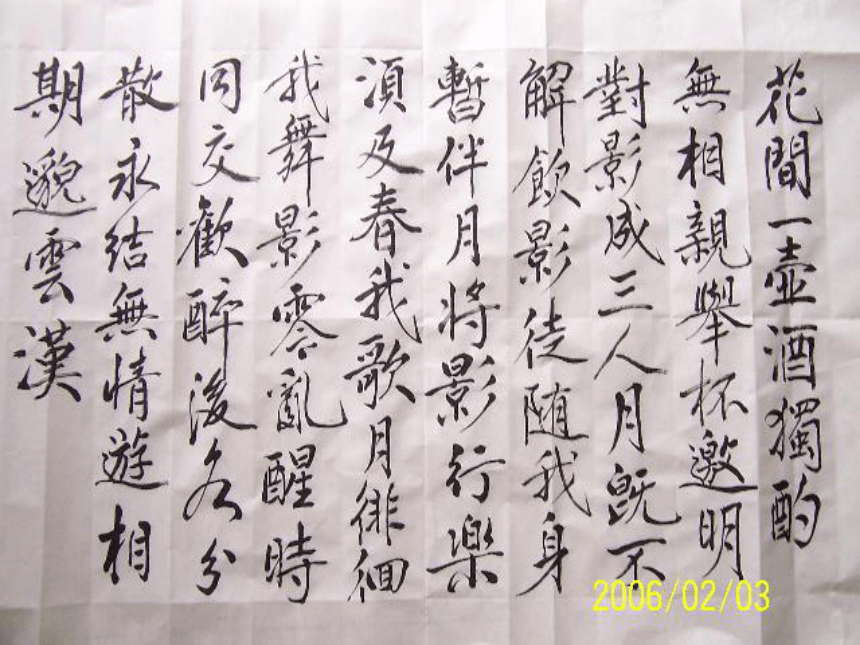 花間一壺酒獨酌
無相親舉杯邀明
對影成三人月既不
解飲影徒隨我身
暫伴月將影行樂
須及春我歌月徘徊
我舞影零亂醒時
同交歡醉後各分
散永結無情遊相
期邈雲漢
2006/02/03